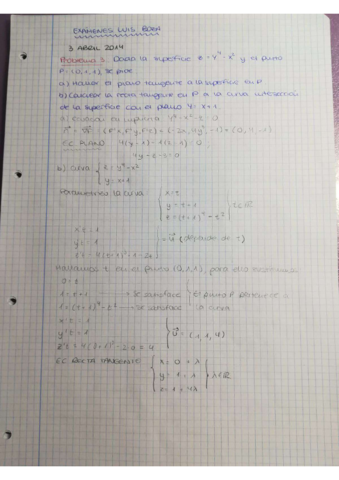 EXÁMENES LUIS BOZA
3 ABRIL 2014
Problema 3. Dada la superficie z = y⁴ - x² y el punto
P = (0,1,1), se pide
a) Hallar el plano tangente a la superficie en P
b) Calcular la recta tangente en P a la curva intersección
de la superficie con el plano y = x+1.
a) Ecuación en implícita y⁴ - x² - z = 0
(F'x, F'y, F'z) = (-2x, 4y³, -1) = (0, 4, -1)
EC PLANO 4(y-1) - 1(z-1) = 0
4y - z - 3 = 0
b) curva { z = y⁴ - x²
y = x+1
Parametrizo la curva { x = t
y = t+1 } t∈ℝ
z = (t+1)⁴ - t²
x' = 1
y' = 1 } = ū (depende de t)
z' = 4(t+1)³ · 1 - 2t
Hallamos t en el punto (0,1,1), para ello
0 = t
1 = t+1 → Se satisface } El punto P pertenece a
1 = (t+1)⁴ - t² → Se satisface la curva
x' = 1
y' = 1 } ū = (1, 1, 4)
z' = 4(0+1)³ - 2·0 = 4
EC RECTA TANGENTE { x = 0 + λ
y = 1 + λ } λ∈ℝ
z = 1 + 4λ